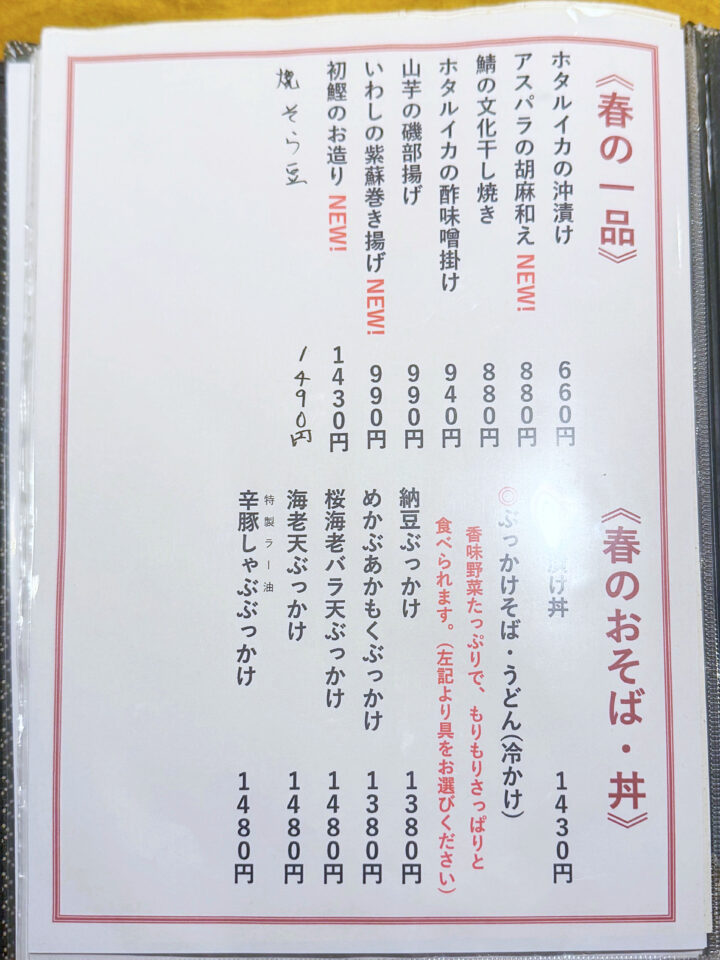 《春の一品》
ホタルイカの沖漬け 660円
アスパラの胡麻和え NEW! 880円
鯖の文化干し焼き 880円
ホタルイカの酢味噌掛け 940円
山芋の磯部揚げ 990円
いわしの紫蘇巻き揚げ NEW! 990円
初鰹のお造り NEW! 1430円
焼そら豆 1490円
《春のおそば・丼》
漬け丼 1430円
◎ぶっかけそば・うどん(冷かけ)
香味野菜たっぷりで、もりもりさっぱりと
食べられます。(左記より具をお選びください)
納豆ぶっかけ 1380円
めかぶあかもくぶっかけ 1380円
桜海老バラ天ぶっかけ 1480円
海老天ぶっかけ 1480円
特製ラー油
辛豚しゃぶぶっかけ 1480円